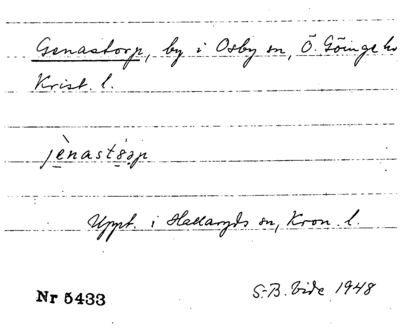 Genastorp, by i Osby sn, Ö. Göinge h
Krist. l.
jènast
Uppt. i Hallaryds sn, Kron. l.
Nr 5433
S-B. Vide 1948